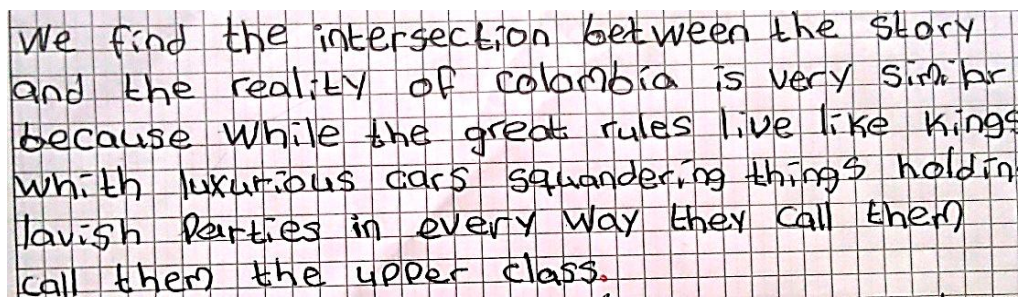 We find the intersection between the story
and the reality of colombia is very similar
because while the great rules live like kings
whith luxurious cars squandering things holdin
lavish Parties in every way they call them
call them the upper class.